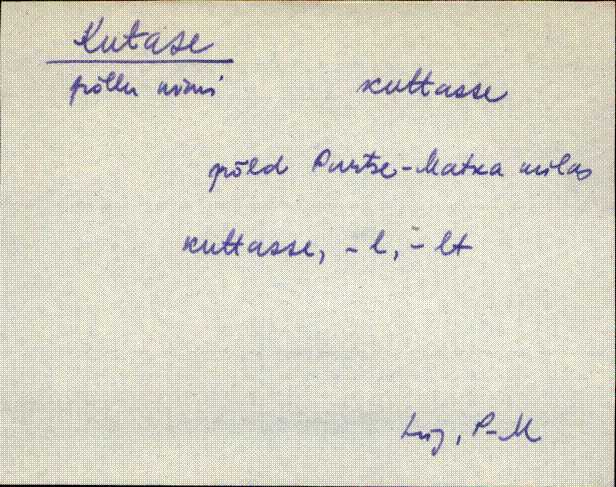 Kutase
põllu nimi kuttasse
põld Purtse-Matka külas
kuttasse, -l, -lt
Lüg, P-M